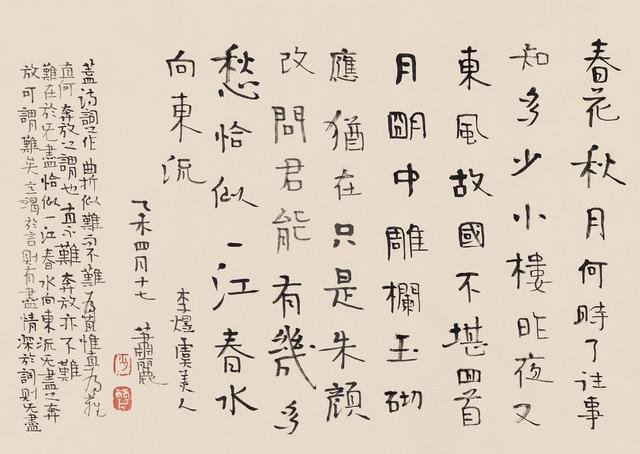 春花秋月何時了往事
知多少小樓昨夜又
東風故國不堪回首
月明中雕欄玉砌
應猶在只是朱顏
改問君能有幾多
愁恰似一江春水
向東流
李煜虞美人
乙未四月十七 蕭麗
蓋詩詞之作曲折似難而不難惟直為難
直何奔放之謂也直亦不難奔放亦不難
難在於无盡恰似一江春水向東流无盡之奔
放可謂難矣竭於言則有盡情深於詞則无盡